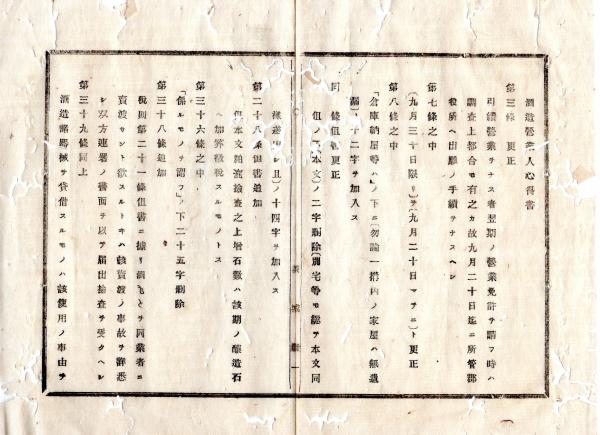 酒造營業人心得書
第三條 更正
引續營業ヲナス者翌期ノ營業免許ヲ請フ時ハ
調査上都合モ有之カ故九月二十日迄ニ所管郡
役所ヘ出願ノ手續ヲナスヘシ
第七條之中
〔九月三十日限リ〕ヲ〔九月二十日マテニ〕ト更正
第八條之中
〔倉庫納屋等ハ〕ノ下ニ〔勿論一搆内ノ家屋ハ無遺
漏〕十二字ヲ加入ス
同條但書更正
但ノ〔本文〕ノ二字刪除〔別宅等モ總テ本文同
樣〕ノ十四字ヲ加入ス
第二十八條但書追加
但本文粕査檢査之上增石數ハ該期ノ釀造石
ヘ加算徵稅スルモノトス
第三十六條之中
〔係ルモノヲ謂フ〕ノ下二十五字刪除
第三十八條追加
稅則第二十一條但書ニ據リ酒ヲ同業者ニ
賣渡サント欲スルトキハ該賣渡ノ事故ヲ詳悉
シ双方連署ノ書面ヲ以テ屆出檢査ヲ受クヘシ
第三十九條同上
酒造諸器械ヲ貸借スルモノハ該使用ノ事由ヲ